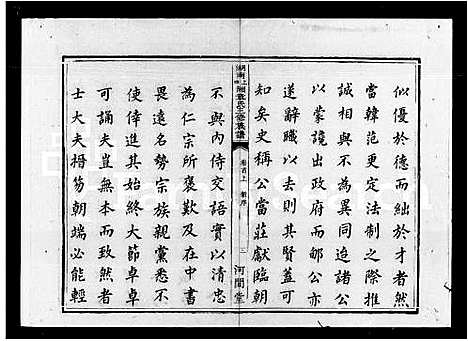 似優於德而絀於才者然
當韓范更定法制之際推
誠相與不為異同迨諸公
以蒙讒出政府而郇公亦
遂辭職以去則其賢蓋可
知矣史稱公當莊獻臨朝
卷首上
三
河間堂
不與內侍交語實以清忠
為仁宗所褒歎及在中書
畏遠名勢宗族親黨悉不
使倖進其始終大節卓卓
可誦夫豈無而致然者
士大夫搢笏朝端必能輕